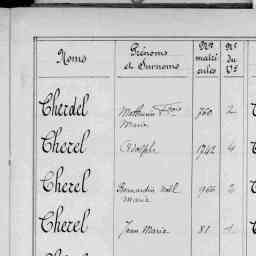 Noms Prénoms et Surnoms Nos matri cules No du Vt
Cherdel Mathurin Fçois Marie 760 2
Cherel Adolphe 1242 4
Cherel Bernardin Noël Marie 966 2
Cherel Jean Marie 81 1